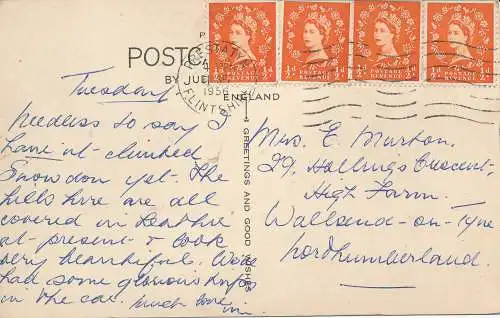 POSTC
BY JUE
ENGLAND
PRESTATYN
1956
FLINTSHIRE
POSTAGE REVENUE
½d
½d
½d
½d
GREETINGS AND GOOD WISHES
Tuesday
Needless to say I
haven't climbed
Snowdon yet. The
hills here are all
covered in heather
at present & look
very beautiful. We've
had some glorious trips
in the car. Much love
Mrs. E. Murton.
29, Hollings Crescent.
High Farm.
Wallsend-on-Tyne
Northumberland.